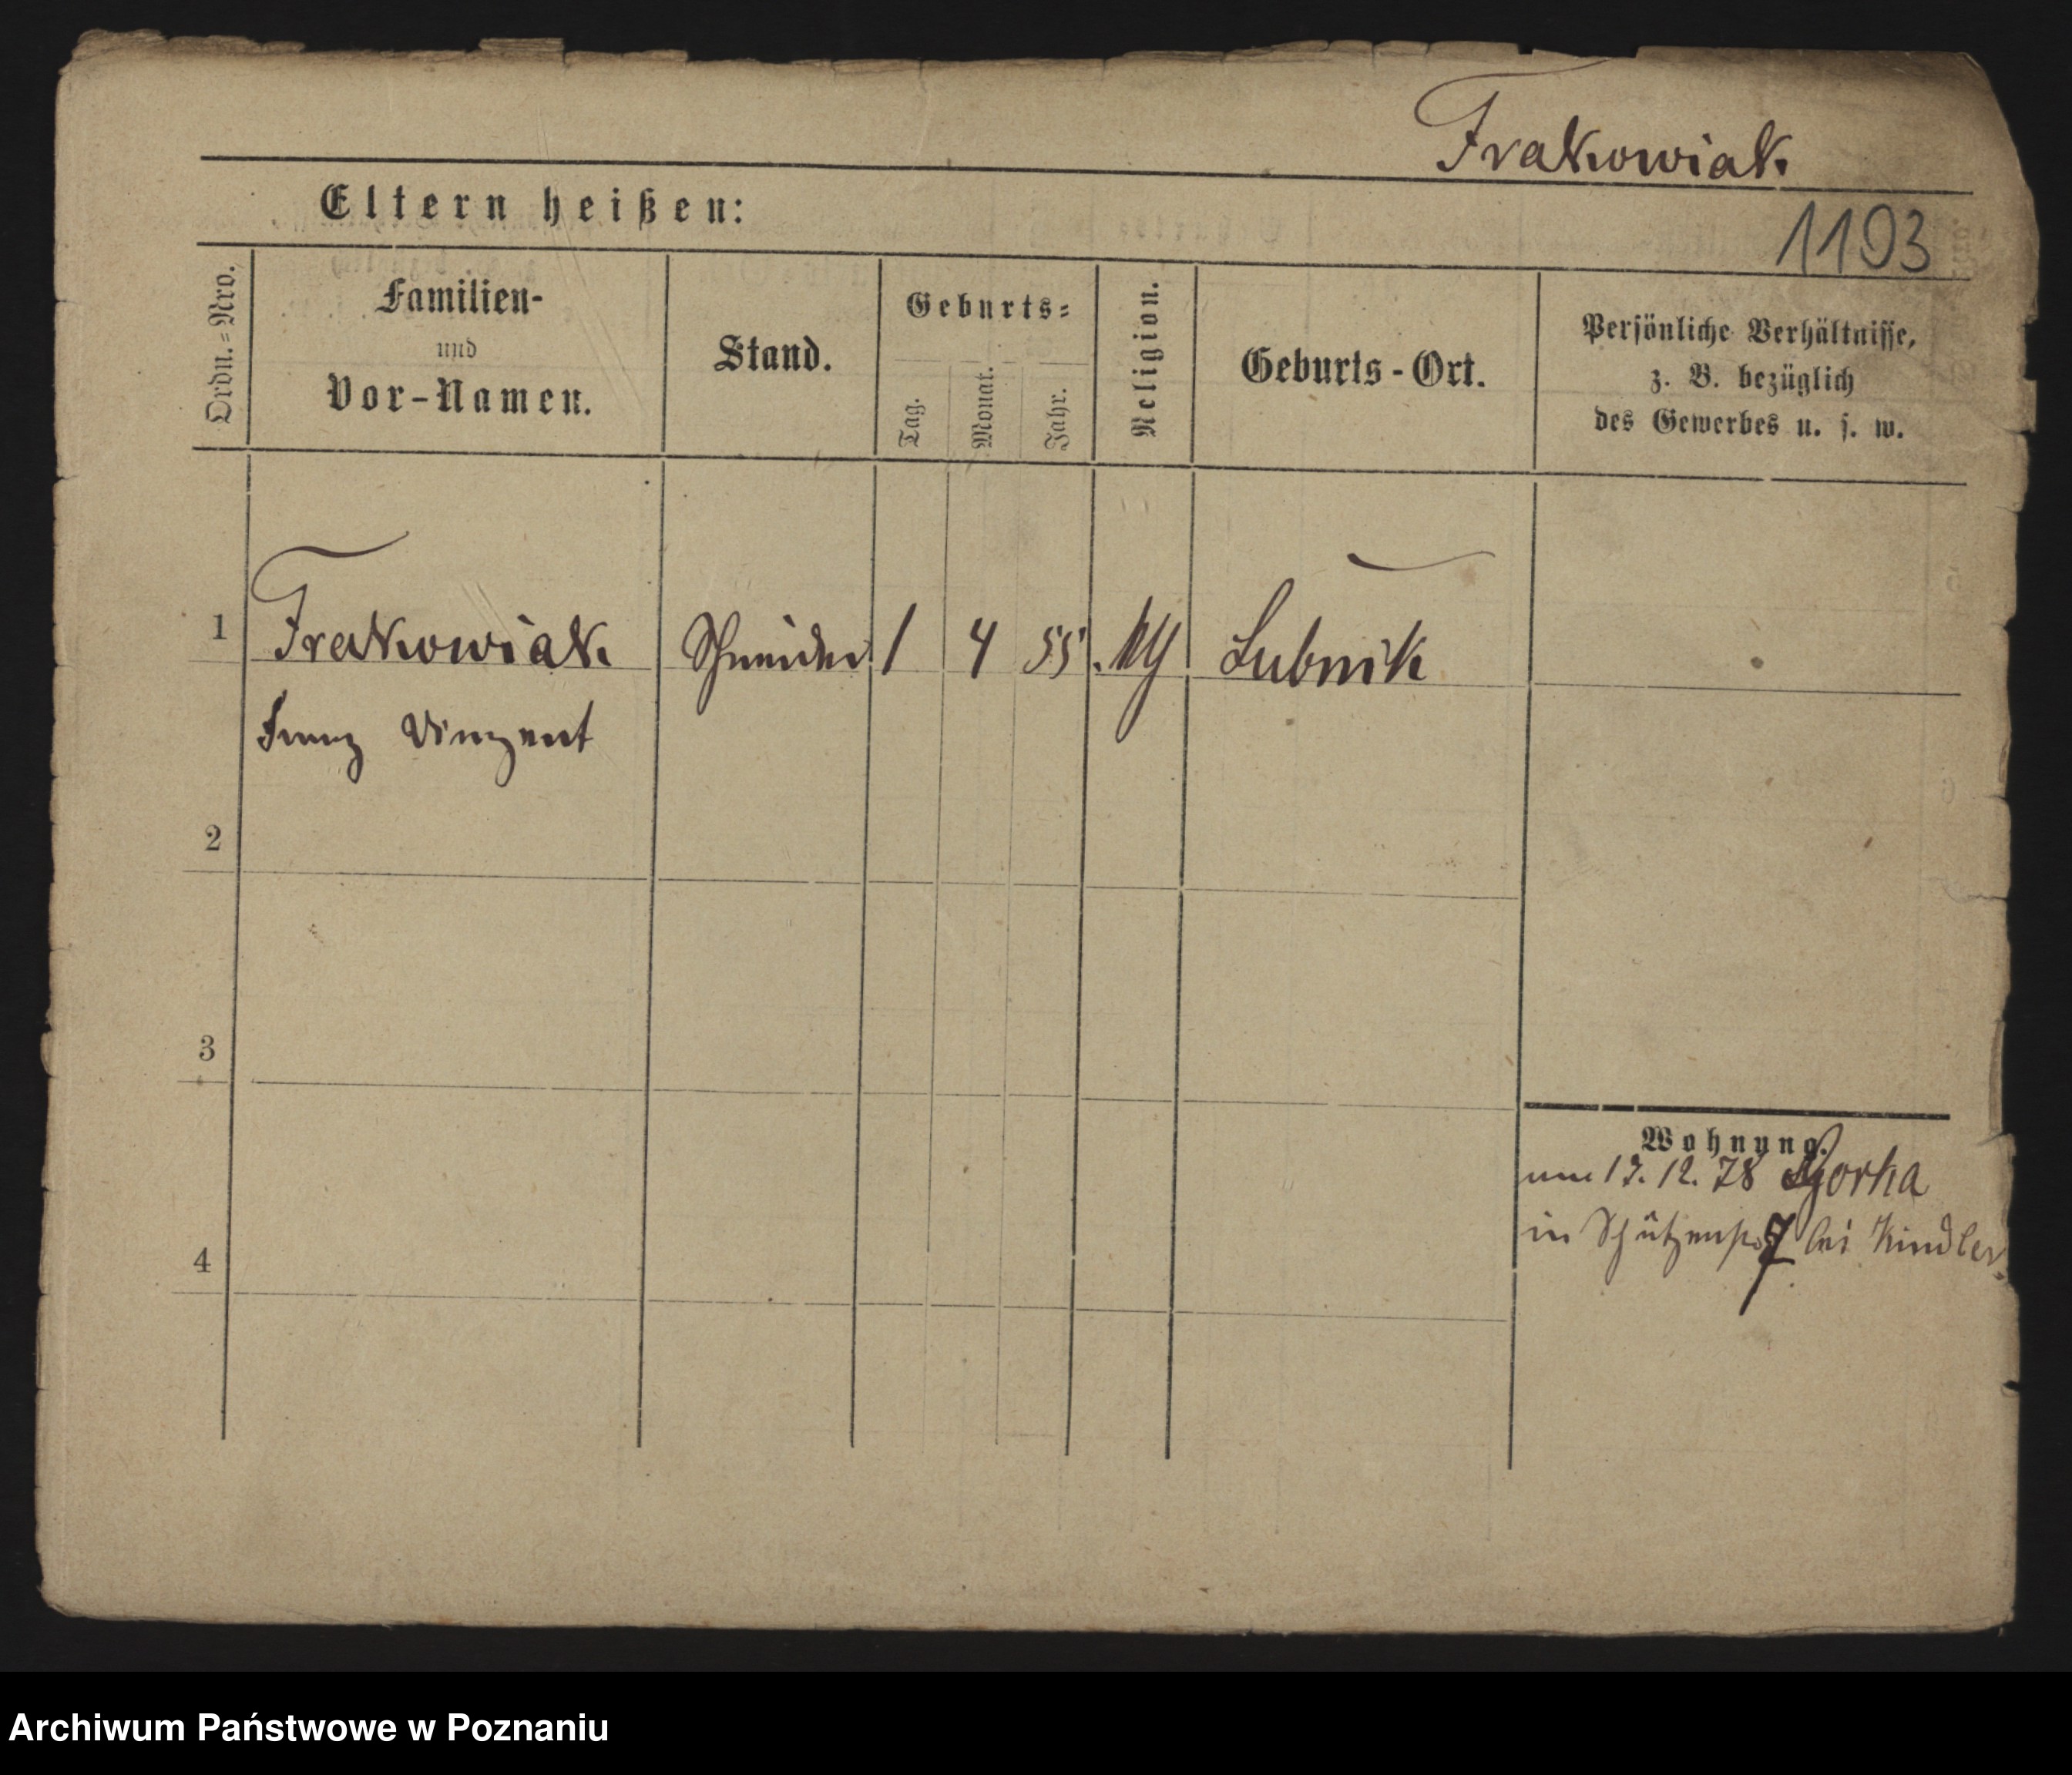 Frakowiak.
Eltern heißen:
1193
Ordn.=Nro.
Familien-
und
Vor-Namen.
Stand.
Geburts=
Tag.
Monat.
Jahr.
Religion.
Geburts-Ort.
Persönliche Verhältnisse,
z. B. bezüglich
des Gewerbes u. s. w.
1 Frakowiak. Schneider 1 4 55 Lubnik
Franz Vinzent
2
3
Wohnung.
17. 12. 78 Gorka
in Schützenstr 7 bei Kindler
4
Archiwum Państwowe w Poznaniu